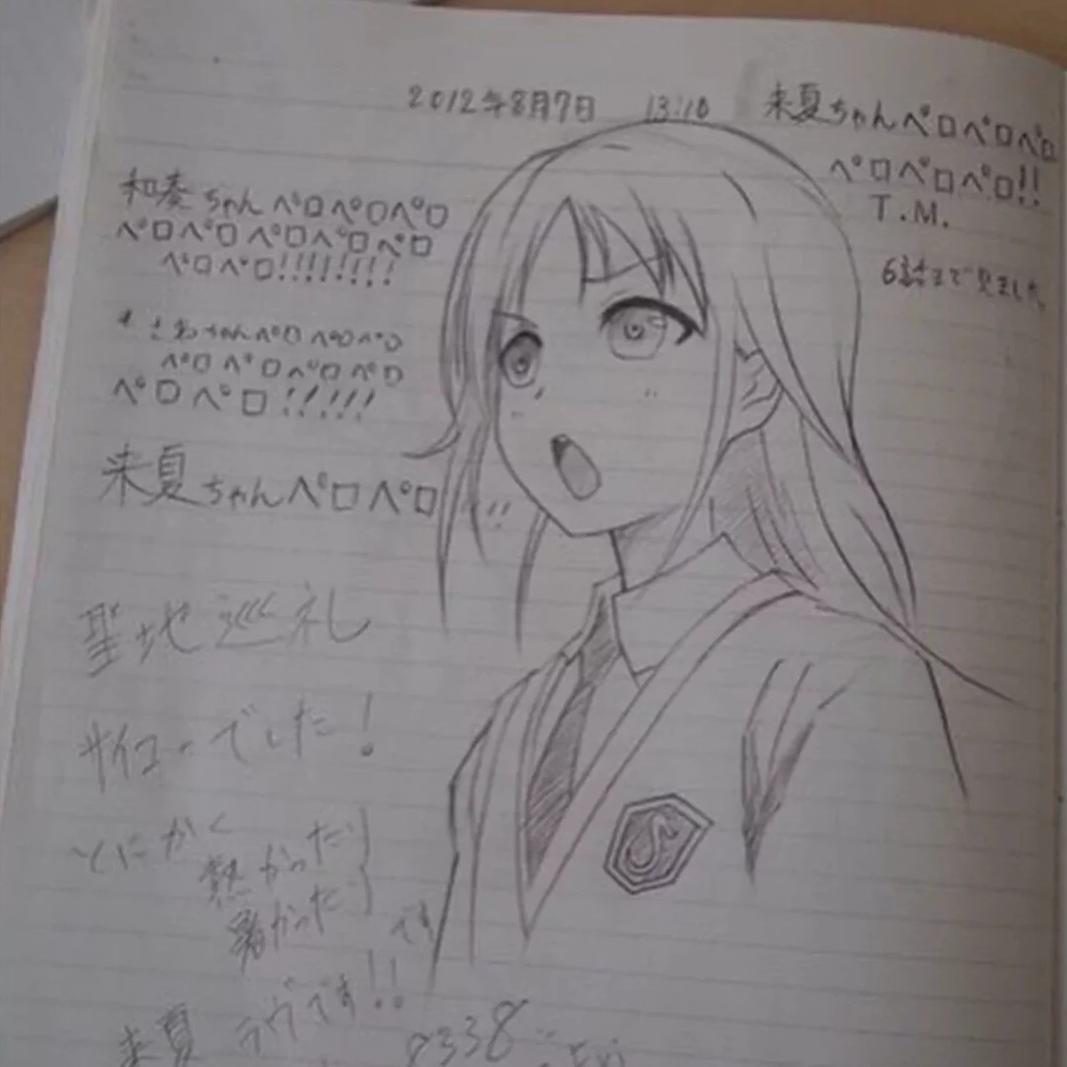 2012年8月7日 13:10
来夏ちゃんペロペロペロ
ペロペロペロ!!
T.M.
6話まで見ました。
和奏ちゃんペロペロペロ
ペロペロペロペロペロ
ペロペロ!!!!!!!!
さわちゃんペロペロペロ
ペロペロペロペロ
ペロペロ!!!!!
来夏ちゃんペロペロ
聖地巡礼
サイコーでした!
とにかく
熱かった
暑かった
です
来夏 ラヴです!!